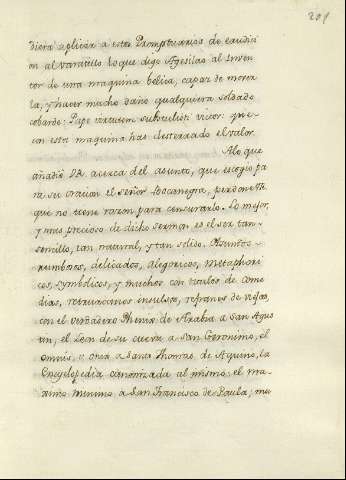 201
diera aplicar a estos Promptuarios de erudici
on al varatillo lo que dijo Agesilao al Inven
tor de una maquina belica, capaz de mover
la, y hacer mucho daño qualquiera soldado
cobarde: Pape virtutem sustulisti: vitor: que
con esta maquina has desterrado el valor.
A lo que
añadio P.R. acerca del asunto, que escogio pa
ra su oracion el señor Boccanegra, perdone
que no tiene razon para censurarlo. Lo mejor,
y mas precioso de dicho sermon es el ser tan
sencillo, tan natural, y tan solido. Asuntos
rumbosos, delicados, alegoricos, metaphori
cos, symbolicos, y muchos con titulos de come
dias, retruecanos insulsos, refranes de viejas,
con el verdadero Phenix de Arabia a San Agus
tin, el Leon de su cueva a San Geronimo, el
omnis, o onia a Santo Thomas de Aquino, la
Encyclopedia canonizada al mismo: el ma
ximo minimo a San Francisco de Paula, mu